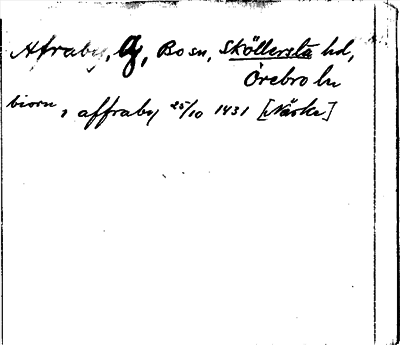 Afraby, G, Bo sn, Sköllersta hd,
Örebro ln
biorn, affraby 25/10 1431 [Närke]